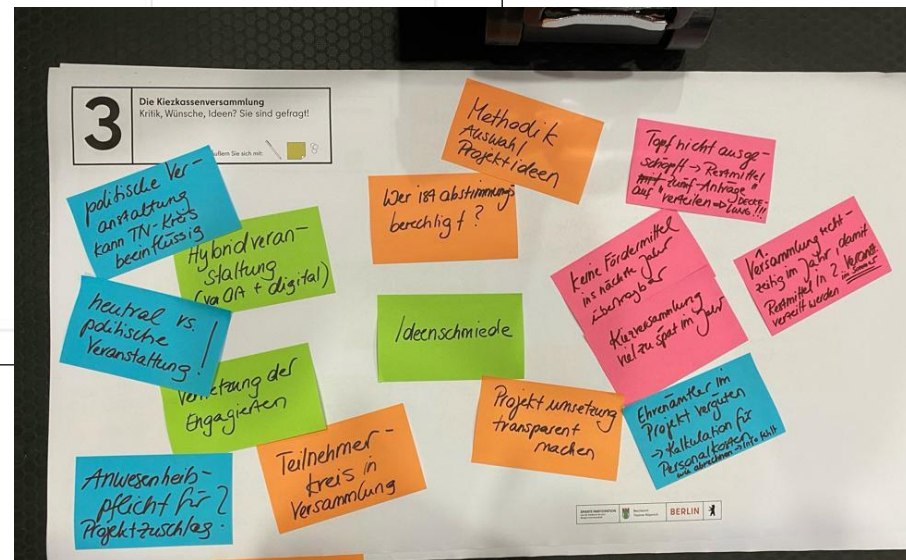 3
Die Kiezkassenversammlung
Kritik, Wünsche, Ideen? Sie sind gefragt!
äußern Sie sich mit:
politische Ver-
anstaltung
kann TN-Kreis
beeinflüssig
Hybridveran-
staltung
(vor Ort + digital)
neutral vs.
politische
Veranstaltung!
Vernetzung der
Engagierten
Anwesenheits-
pflicht für
Projektzuschlag?
Teilnehmer-
kreis in
Versammlung
Methodik
Auswahl
Projektideen
Wer ist abstimmungs
berechtigt?
Ideenschmiede
Projektumsetzung
transparent
machen
Topf nicht ausge-
schöpft → Restmittel
auf
verteilen ⇒ DECKE-
LUNG!!!
keine Fördermittel
ins nächste Jahr
übertragbar
Kiezversammlung
viel zu spät im Jahr
1. Versammlung recht-
zeitig im Jahr, damit
Restmittel in 2. Verans.
im Sommer
verteilt werden
Ehrenämtler im
Projekt vergüten
→ Kalkulation für
Personalkosten
wie abrechnen → Info fehlt
BERLIN